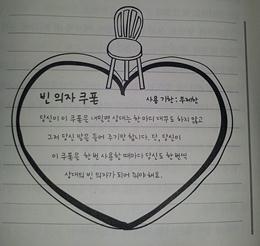 빈 의자 쿠폰
사용 기한 : 무제한
당신이 이 쿠폰을 내밀면 상대는 한 마디 대꾸도 하지 않고
그저 당신 말을 들어 주기만 합니다. 단, 당신이
이 쿠폰을 한 번 사용할 때마다 당신도 한 번씩
상대의 빈 의자가 되어 줘야 해요.